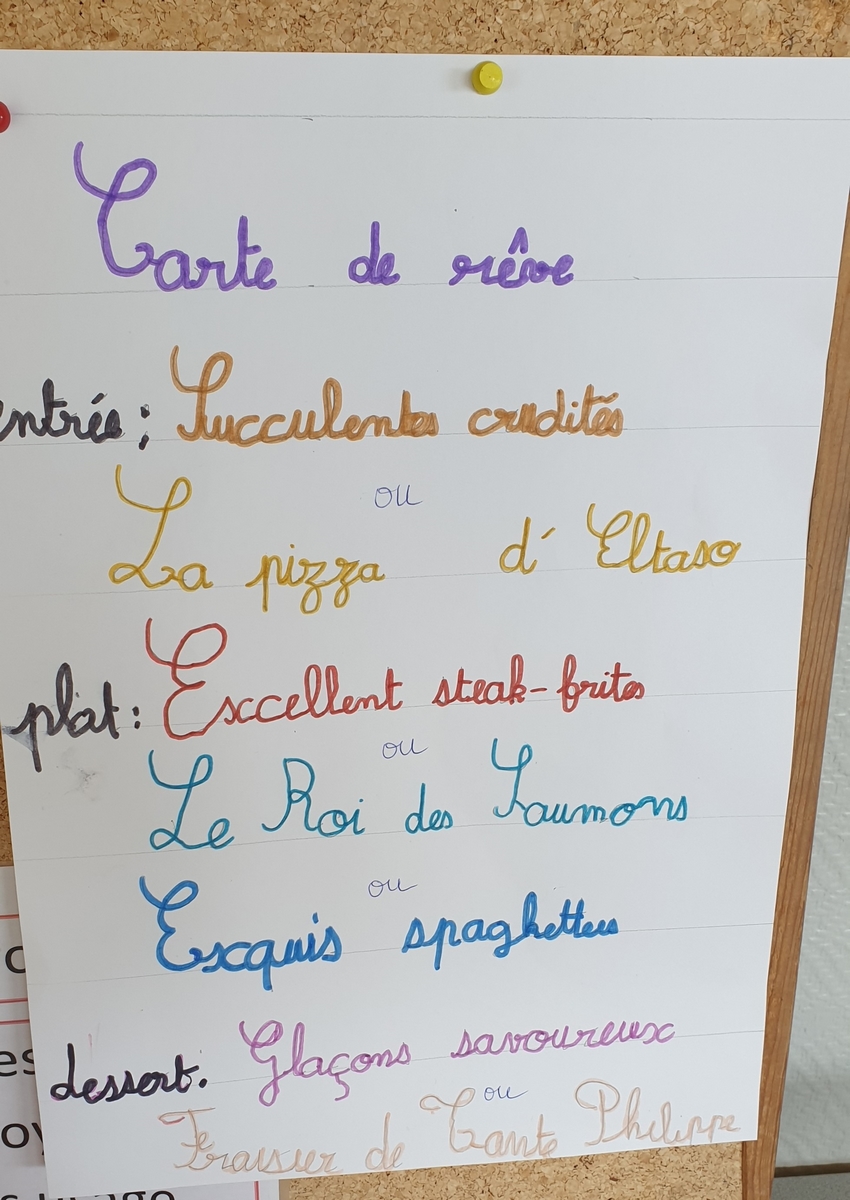 Carte de rêve
entrée ; Succulentes crudités
ou
La pizza d' Eltaso
plat : Excellent steak-frites
ou
Le Roi des Saumons
ou
Exquis spaghettis
dessert. Glaçons savoureux
ou
Fraisier de Tante Philippe